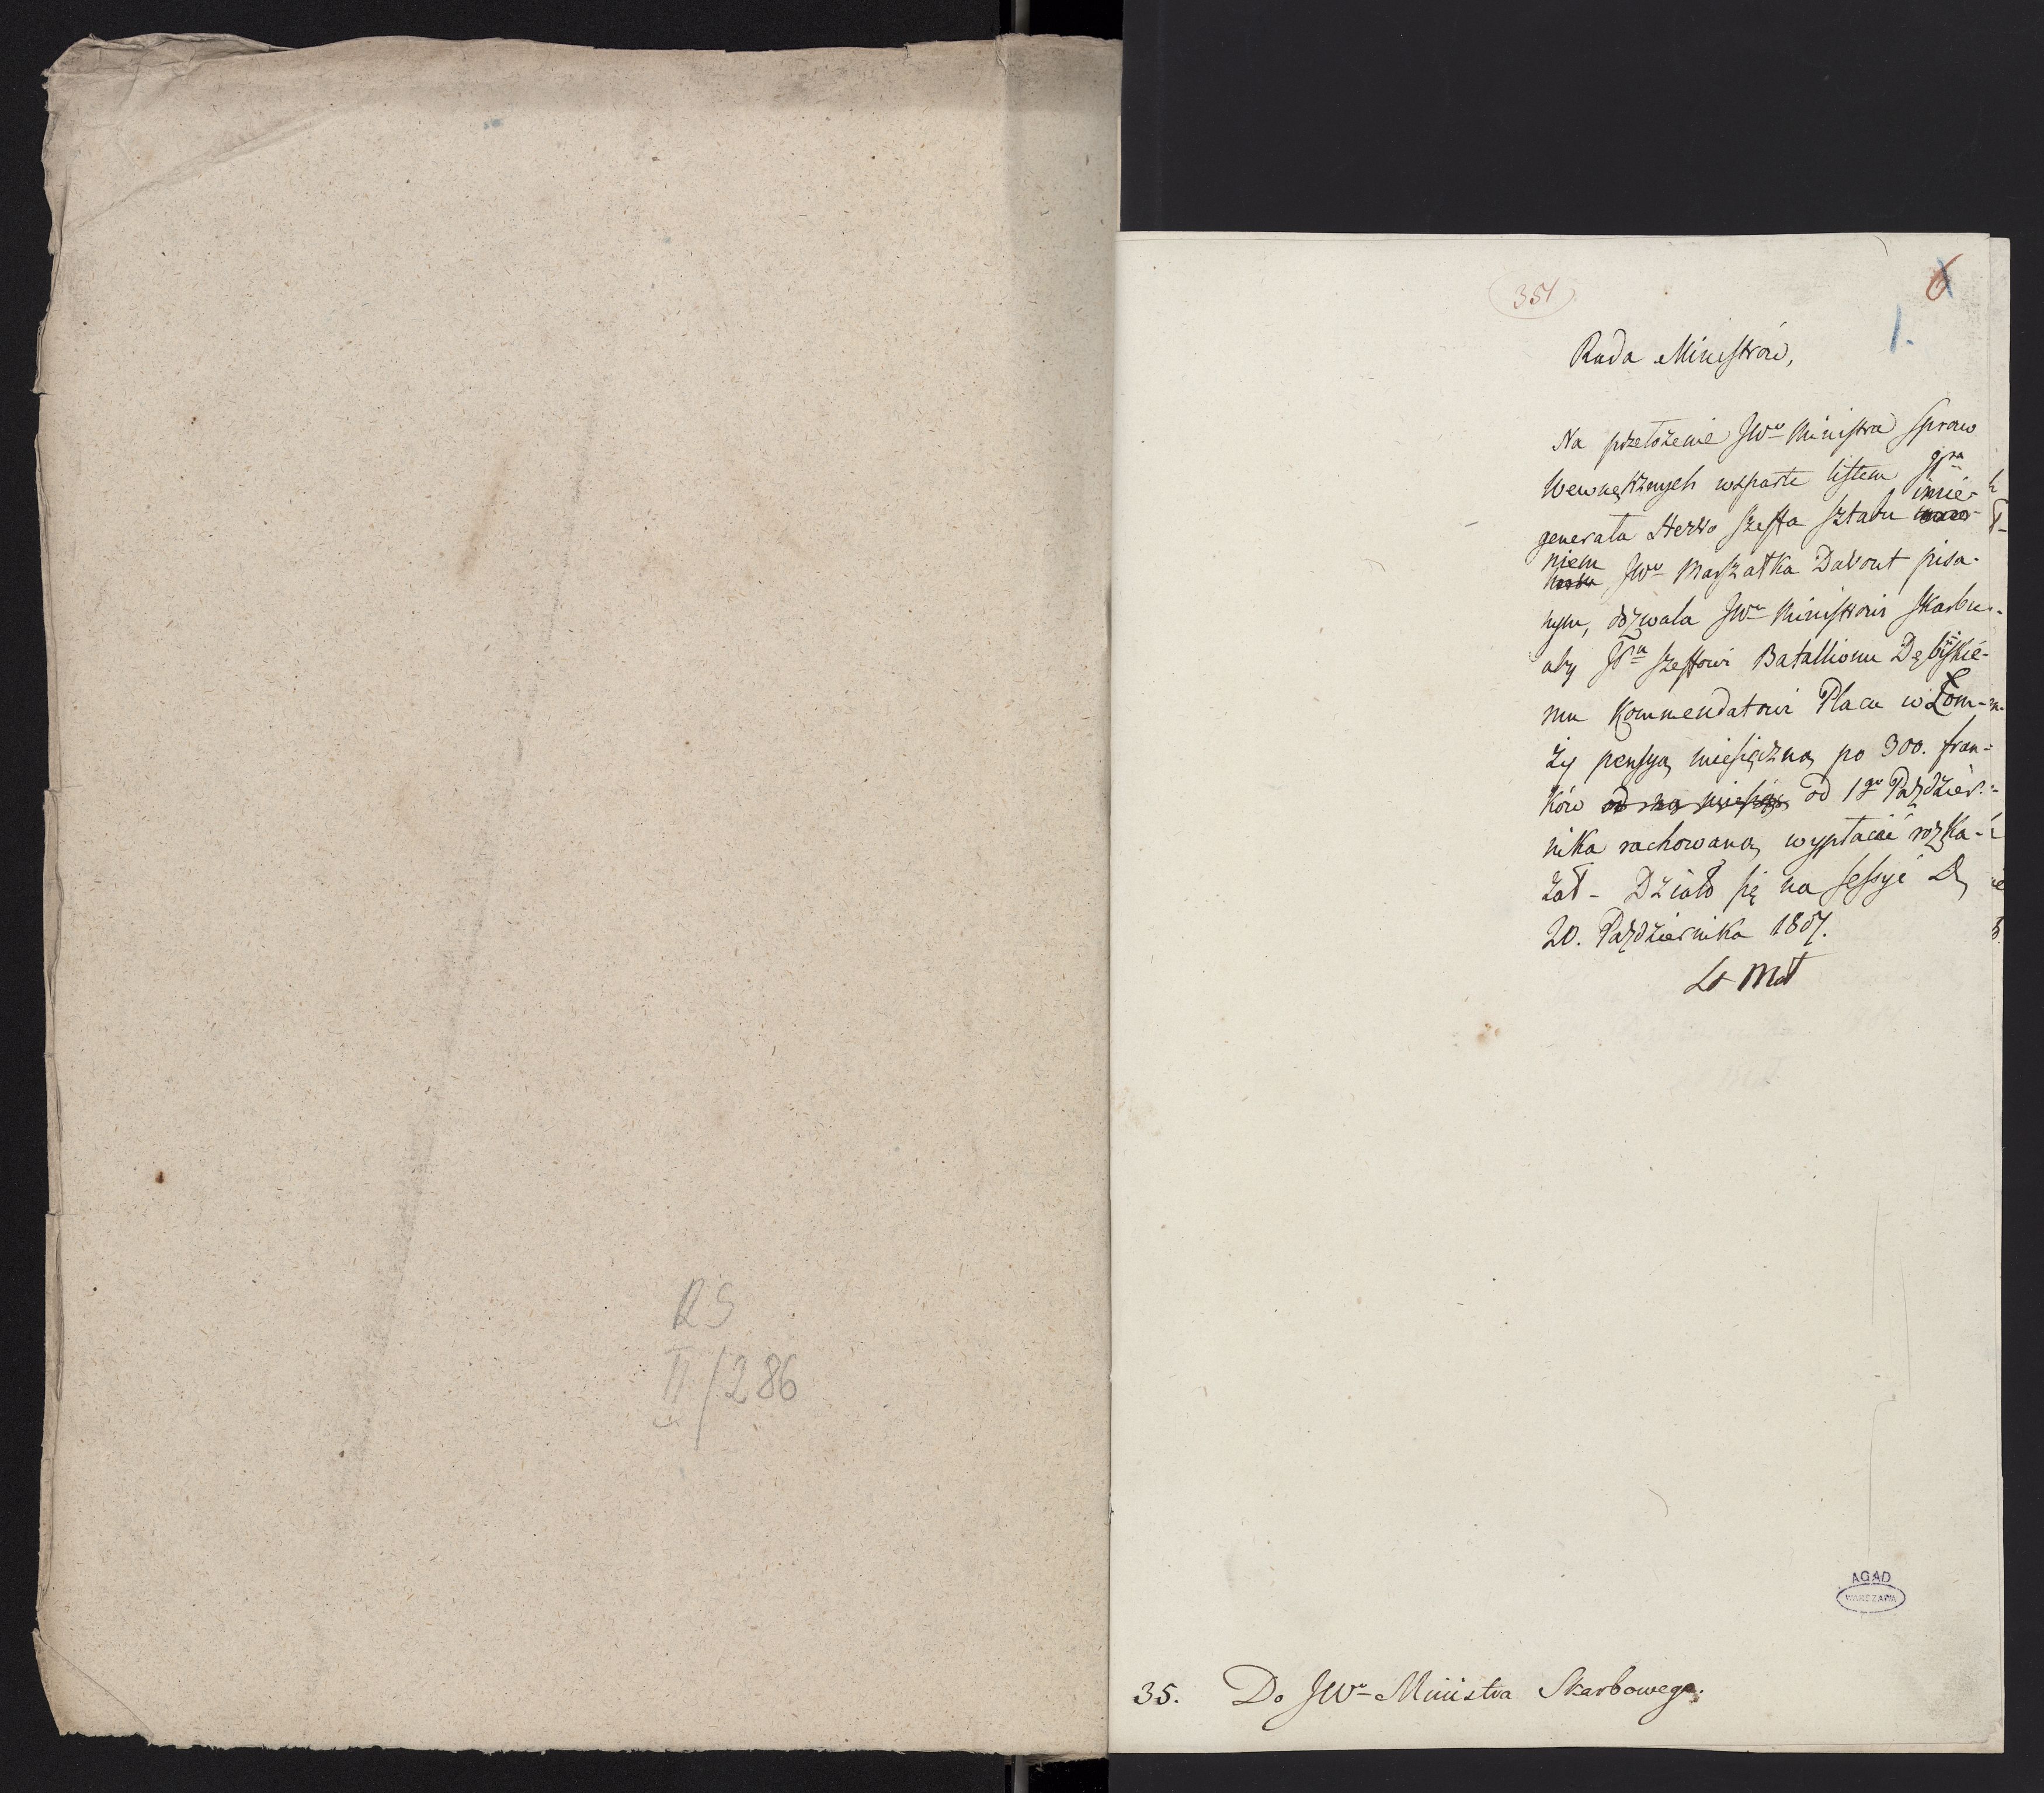 RS
II/286
351
6
1.
Rada Ministrów,
Na przełożenie JWo Ministra Spraw
Wewnętrznych wsparte listem Jpa
generała Herwo szeffa sztabu imie-
niem JWo Marszałka Davout pisa-
nym, odzwała JWu Ministrowi Skarbu
aby JPu szeffowi Batallionu Dębińskie-
mu Kommendatowi Placu w Łom-
ży pensyą miesięczną po 300. fran-
ków od 1go Paździer-
nika rachowaną wypłacać rozka-
zał - Działo się na sessyi D.
20. Października 1807.
AGAD
WARSZAWA
35. Do JWo Ministra Skarbowego.